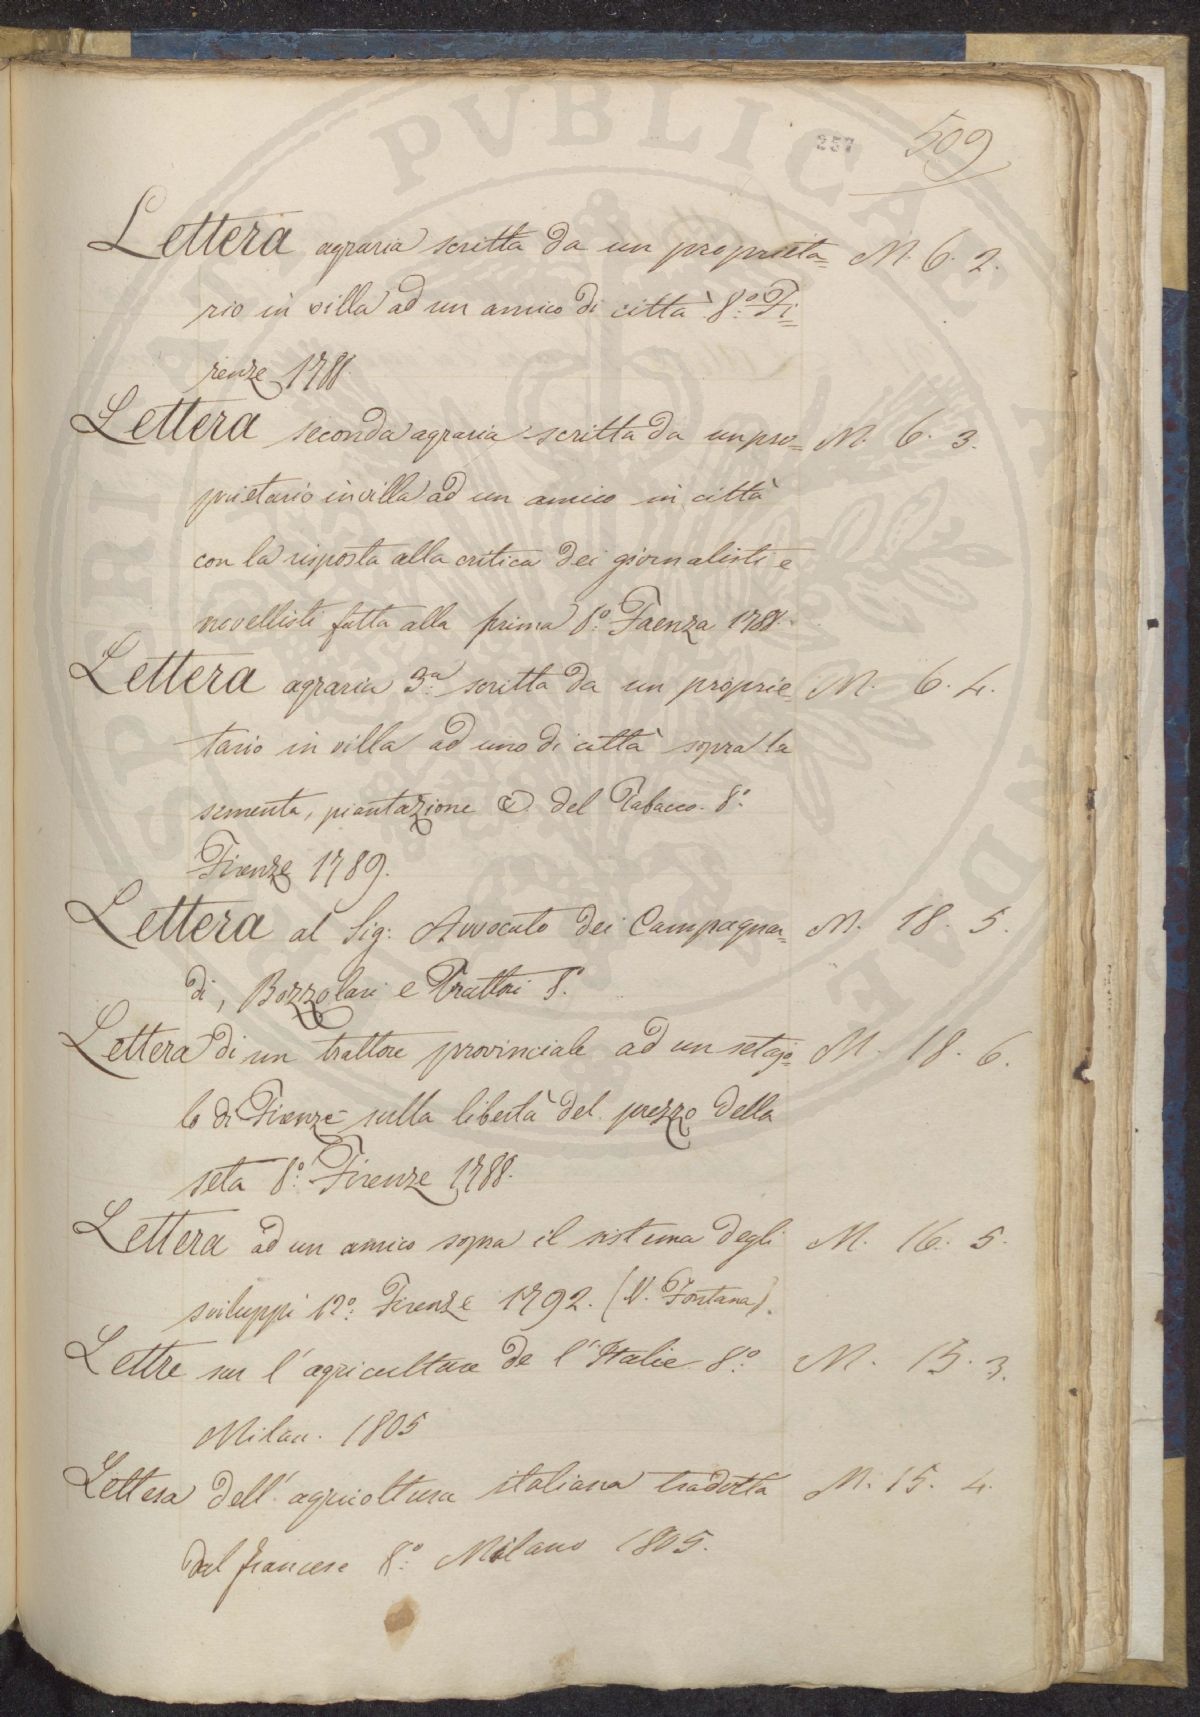 257 509
Lettera agraria scritta da un proprieta= M. 6. 2.
rio in villa ad un amico di città 8.º Fi=
renze 1788.
Lettera seconda agraria scritta da un pro= M. 6. 3.
prietario in villa ad un amico in città
con la risposta alla critica dei giornalisti e
novellisti fatta alla prima 8.º Faenza 1788.
Lettera agraria 3.ª scritta da un proprie= M. 6. 4.
tario in villa ad uno di città sopra la
sementa, piantazione & del Tabacco. 8.º
Firenze 1789.
Lettera al Sig: Avvocato dei Campagnar= M. 18. 5.
di, Bozzolari e Trattori 8.º
Lettera di un trattore provinciale ad un setajo= M. 18. 6.
lo di Firenze sulla libertà del prezzo della
seta 8.º Firenze 1788.
Lettera ad un amico sopra il sistema degli M. 16. 5.
sviluppi 12.º Firenze 1792. (V. Fontana).
Lettre sur l'agriculture de l'Italie 8.º M. 15. 3.
Milan. 1805
Lettera dell'agricoltura italiana tradotta M. 15. 4.
dal francese 8.º Milano 1805.